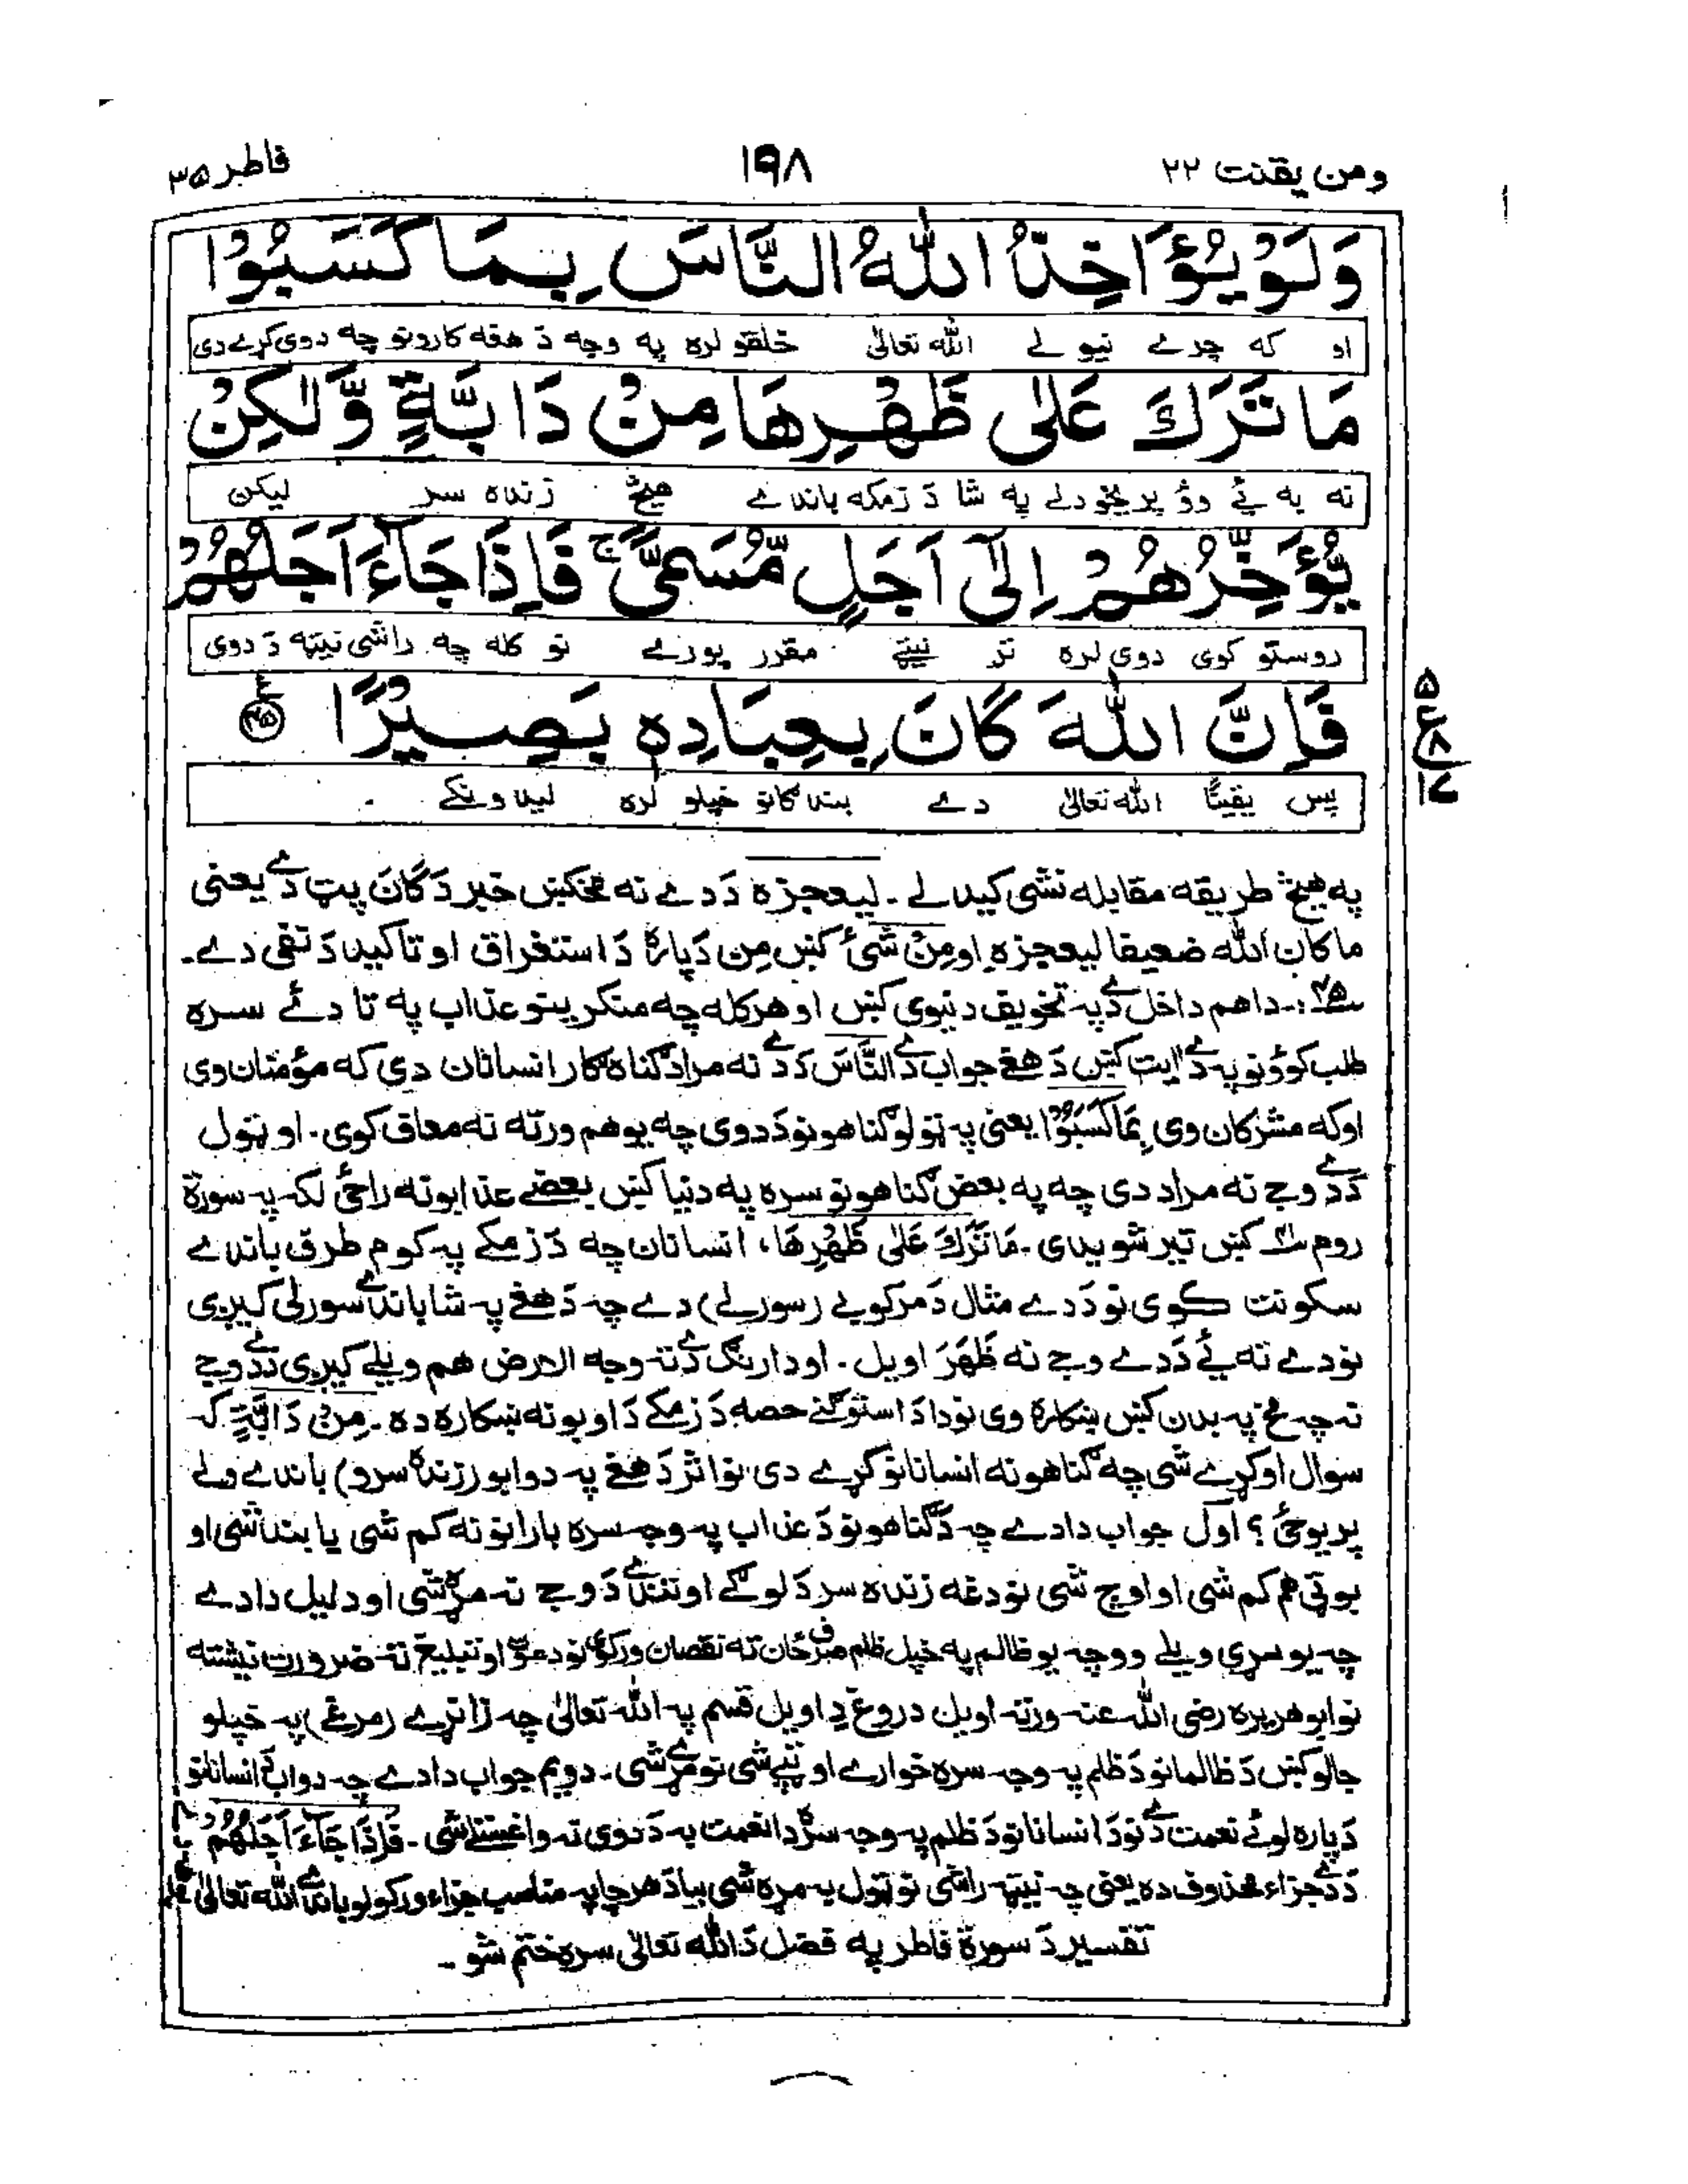 ومن یقنت ۲۲
۱۹۸
فاطر ۳۵
وَلَوْ يُؤَاخِذُ اللّٰهُ النَّاسَ بِمَا كَسَبُوْا
او که چرے نیولے اللّٰه تعالیٰ خلقو لره په وجه دَ هغه کارونو چه دوی کړے دی
مَا تَرَكَ عَلٰی ظَهْرِهَا مِنْ دَآبَّةٍ وَّلٰكِنْ
نه به ئے وؤ پریخودلے په شا دَ زمکه باندے هیڅ زنده سر لیکن
يُّؤَخِّرُهُمْ اِلٰٓی اَجَلٍ مُّسَمًّی ۚ فَاِذَا جَآءَ اَجَلُهُمْ
روستو کوی دوی لره تر نیټے مقرر پورے نو کله چه راشی نیټه دَ دوی
فَاِنَّ اللّٰهَ كَانَ بِعِبَادِهٖ بَصِيْرًا ۴۵
پس یقینًا اللّٰه تعالیٰ دے بندگانو خپلو لره لیدونکے
په هیڅ طریقه مقابله نشی کیدلے ۔ لیعجزه دَ دے نه مخکښ خبر دَ کَانَ پټ دے یعنی
ما کان اللّٰه ضعیفا لیعجزه او مِنْ شَیْءٍ کښ مِن دَپاره دَ استغراق او تاکید دَ نفی دے۔
۴۵:۔ دا هم داخل دے په تخویف دنیوی کښ او هرکله چه منکرینو عذاب په تادئے سره
طلب کوؤ نو په دے ایت کښ دَ هغے جواب دے النَّاسَ دَ دے نه مراد گناه گار انسانان دی که مؤمنان وی
او که مشرکان وی بِمَا کَسَبُوْا یعنی په ټولو گناهونو دَ دوی چه یو هم ورته نه معاف کوی. او ټول
دَ دے وجے نه مراد دی چه په بعض گناهونو سره په دنیا کښ بعضے عذابونه راځی لکه په سورة
روم ۴۱ کښ تیر شویدی ۔ مَا تَرَكَ عَلٰی ظَهْرِهَا، انسانان چه دَ زمکے په کوم طرف باندے
سکونت کوی نو دَ دے مثال دَ مرکوبے (سورلے) دے چه دَ هغے په شا باندے سورلی کیږی
نو دے ته ئے دَ دے وجے نه ظَهْرَ اویل ۔ او دا رنگ دے ته وجه الارض هم ویلے کیږی دَ دے وجے
نه چه مخ په بدن کښ ښکاره وی نو دا دَ استوگنے حصه دَ زمکے دَ اوبو نه ښکاره ده ۔ مِنْ دَآبَّةٍ که
سوال اوکړے شی چه گناهونه انسانانو کړے دی نو اثر دَ هغے په دوابو (زنده سرو) باندے ولے
پریوځی ؟ اول جواب دا دے چه دَ گناهونو دَ عذاب په وجه سره بارانونه کم شی یا بند شی او
بوټی هم کم شی او اوچ شی نو دغه زنده سر دَ لوگے او تندے دَ وجے نه مړه شی او دلیل دا دے
چه یو سړی ویلے وو چه یو ظالم په خپل ظلم صرف ځان ته نقصان ورکوی نو دعوت او تبلیغ ته ضرورت نیشته
نو ابو هریره رضی اللّٰه عنه ورته اویل دروغ دِ اویل قسم په اللّٰه تعالیٰ چه زاڼړے (مرغۍ) په خپلو
جالو کښ دَ ظالمانو دَ ظلم په وجه سره خوارے او تږے شی نو مړے شی ۔ دویم جواب دا دے چه دواب دَ انسانانو
دَپاره لوئے نعمت دے نو دَ انسانانو دَ ظلم په وجه سره دا نعمت به دَ دوی نه واغستے شی ۔ فَاِذَا جَآءَ اَجَلُهُمْ
دَ دے جزاء محذوف ده یعنی چه نیټه راشی نو ټول به مړه شی بیا دَ هر چا په مناسب جزاء ورکولو باندے اللّٰه تعالیٰ
تفسیر دَ سورة فاطر په فضل دَ اللّٰه تعالیٰ سره ختم شو ۔